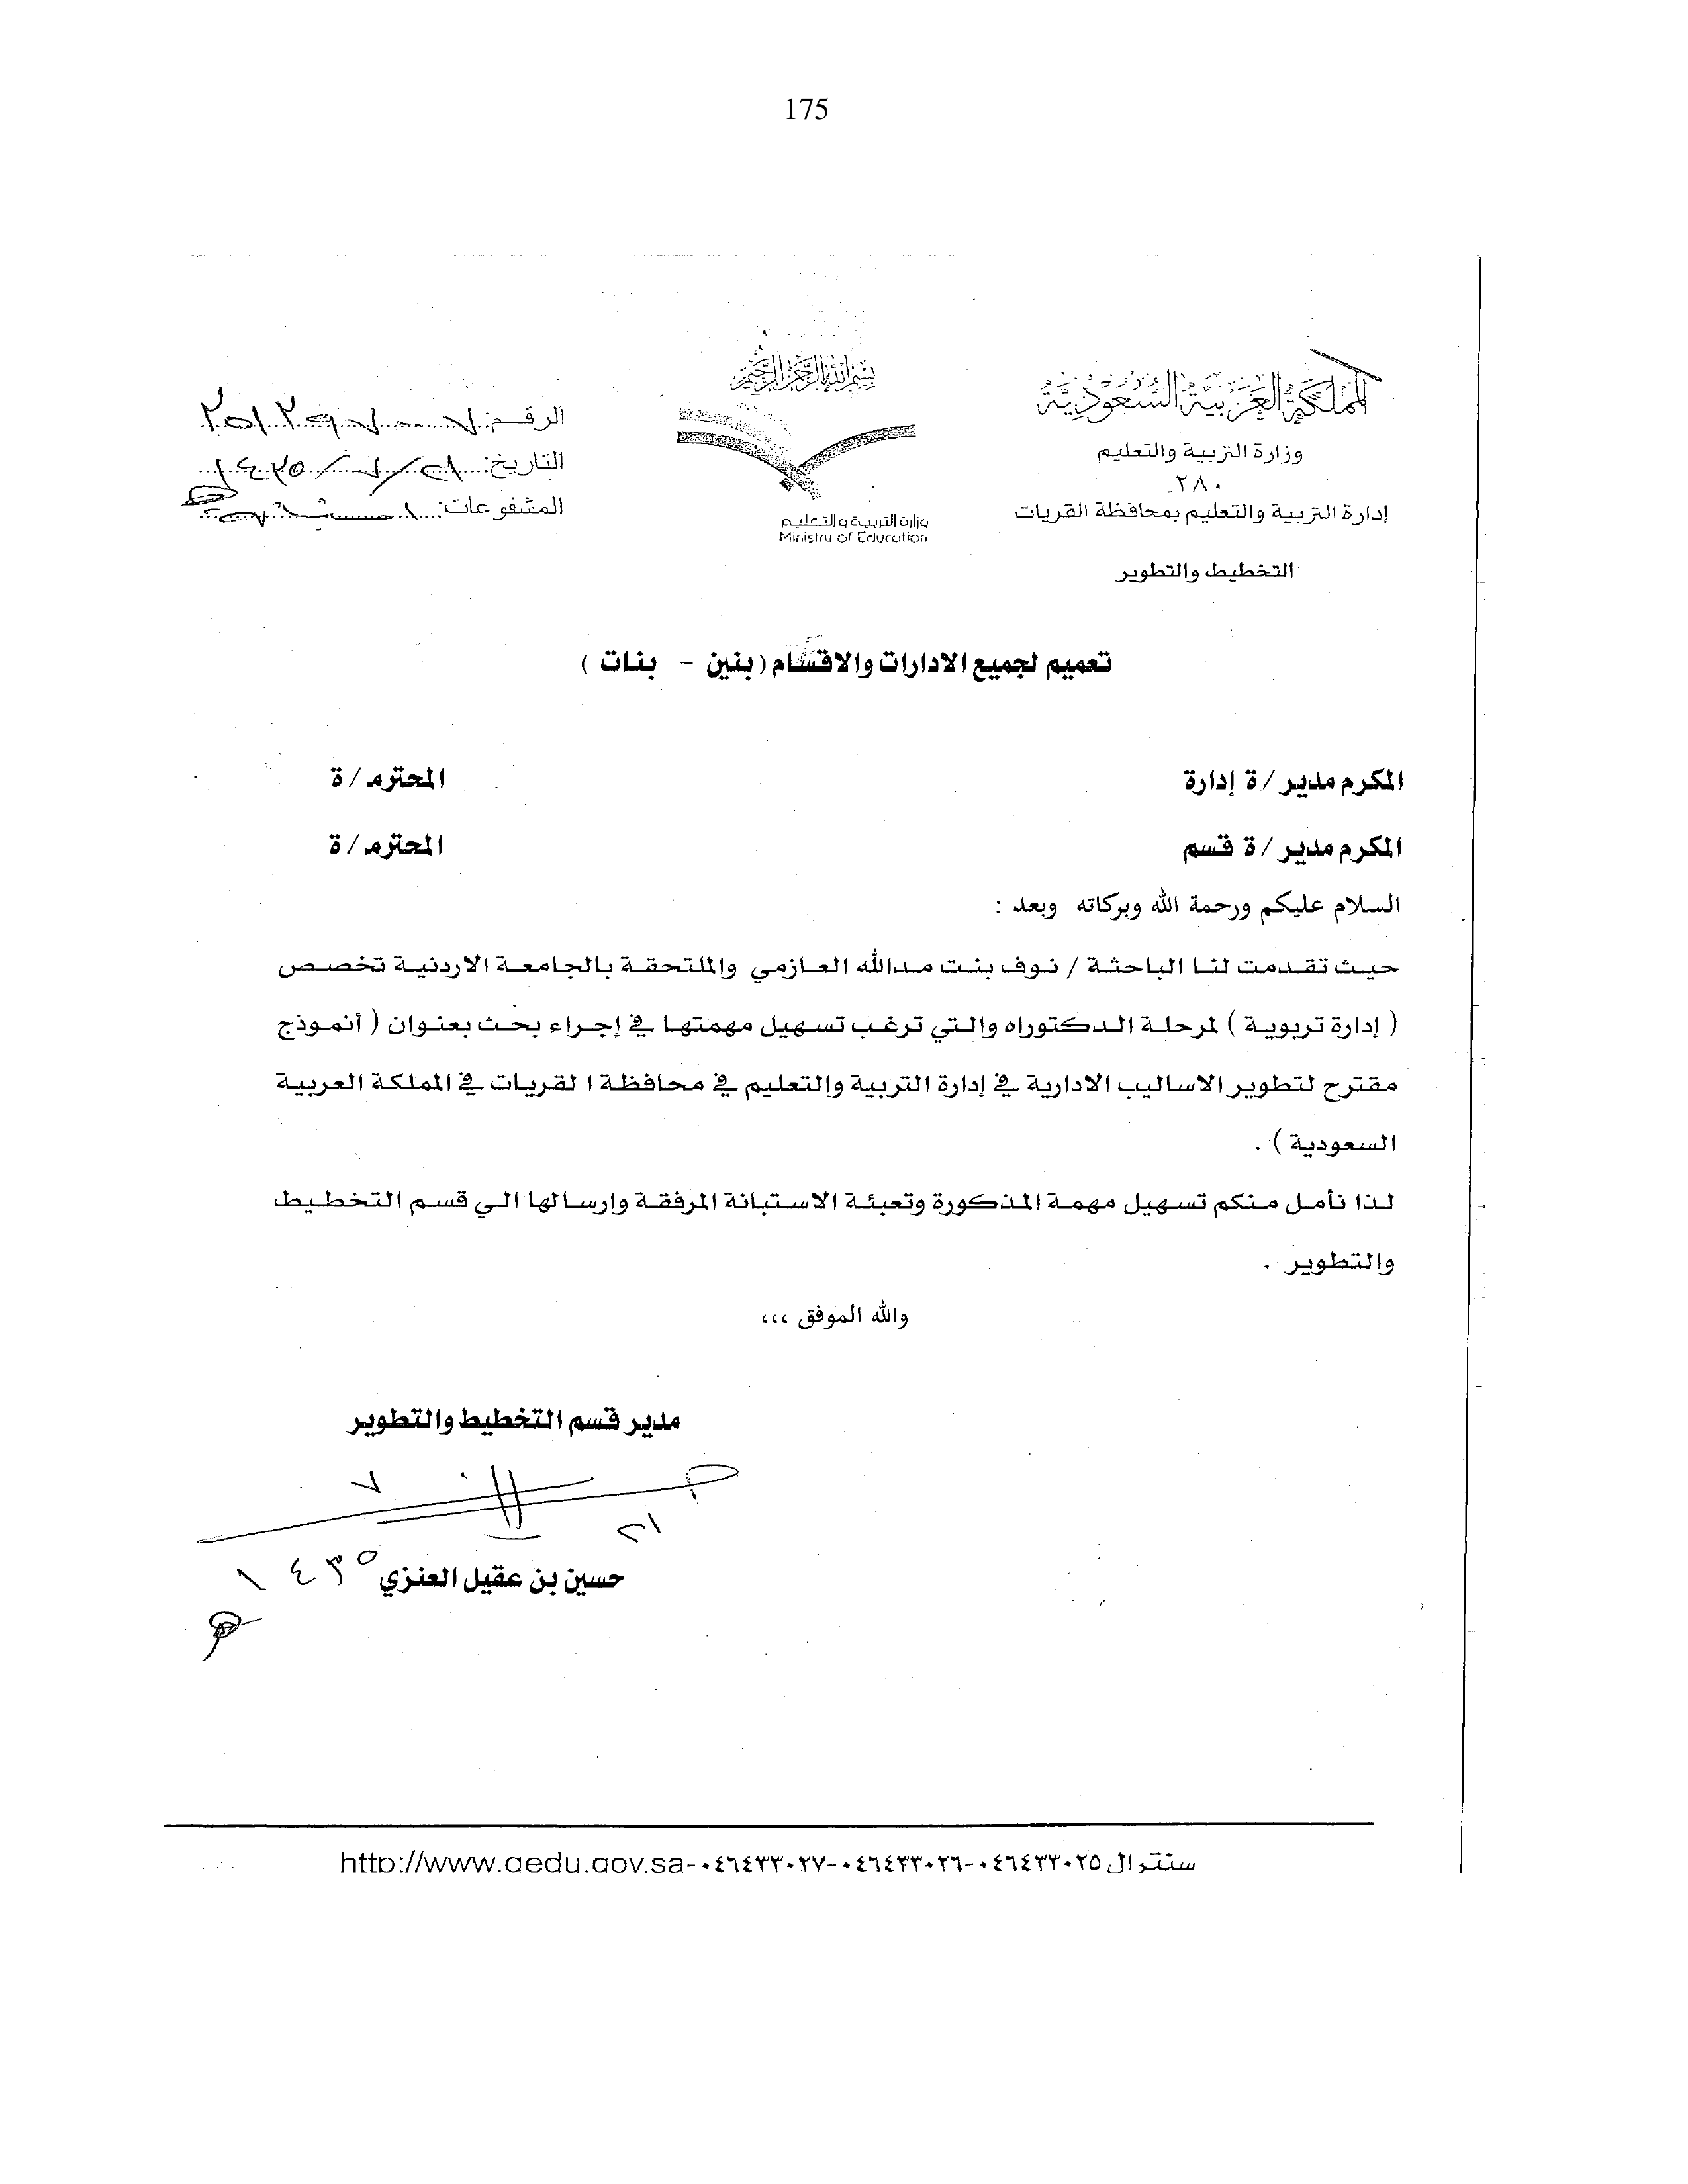 175
بسم الله الرحمن الرحيم
المملكة العربية السعودية
وزارة التربية والتعليم
٢٨٠
إدارة التربية والتعليم بمحافظة القريات
التخطيط والتطوير
وزارة التربية والتعليم
Ministry of Education
الرقم:
التاريخ:
المشفوعات:
تعميم لجميع الادارات والاقسام (بنين - بنات )
المكرم مدير/ة إدارة المحترم/ة
المكرم مدير/ة قسم المحترم/ة
السلام عليكم ورحمة الله وبركاته وبعد :
حيث تقدمت لنا الباحثة / نوف بنت مدالله العازمي والملتحقة بالجامعة الاردنية تخصص
( إدارة تربوية ) لمرحلة الدكتوراه والتي ترغب تسهيل مهمتها في إجراء بحث بعنوان ( أنموذج
مقترح لتطوير الاساليب الادارية في إدارة التربية والتعليم في محافظة القريات في المملكة العربية
السعودية ) .
لذا نأمل منكم تسهيل مهمة المذكورة وتعبئة الاستبانة المرفقة وارسالها الي قسم التخطيط
والتطوير .
والله الموفق ،،،
مدير قسم التخطيط والتطوير
٢١
٧
حسين بن عقيل العنزي ١٤٣٥
سنترال ٠٤٦٤٣٣٠٢٥-٠٤٦٤٣٣٠٢٦-٠٤٦٤٣٣٠٢٧-http://www.qedu.gov.sa